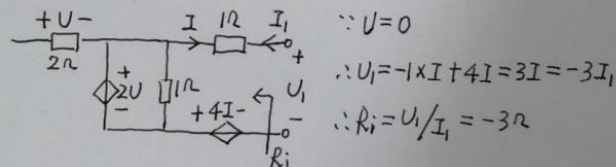 +U-
I
1Ω
I₁
2Ω
+
+
2U
-
1Ω
+4I-
U₁
-
Ri
∵ U=0
∴U₁=-1×I+4I=3I=-3I₁
∴Ri=U₁/I₁=-3Ω